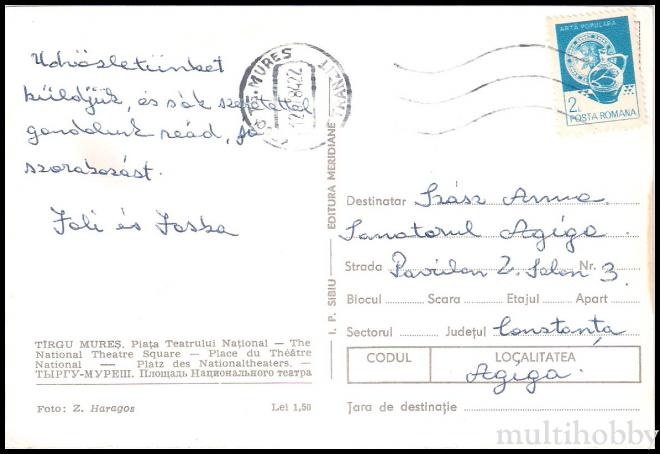 Üdvözletünket
küldjük, és sok szeretettel
gondolunk reád, jó
szorakozást.
Joli és Joska
TÎRGU MUREȘ. Piața Teatrului Național — The
National Theatre Square — Place du Théâtre
National — Platz des Nationaltheaters. —
ТЫРГУ-МУРЕШ. Площадь Национального театра
Foto: Z. Haragos Lei 1,50
I. P. SIBIU — EDITURA MERIDIANE
MUREȘ
TRANZIT
ARTA POPULARA
2L
POSTA ROMANA
Destinatar Szász Anna
Sanatorul Agigea
Strada Pavilon 2. Salon Nr. 3
Blocul Scara Etajul Apart
Sectorul Județul Constanța
CODUL LOCALITATEA
Agigea.
Țara de destinație
multihobby